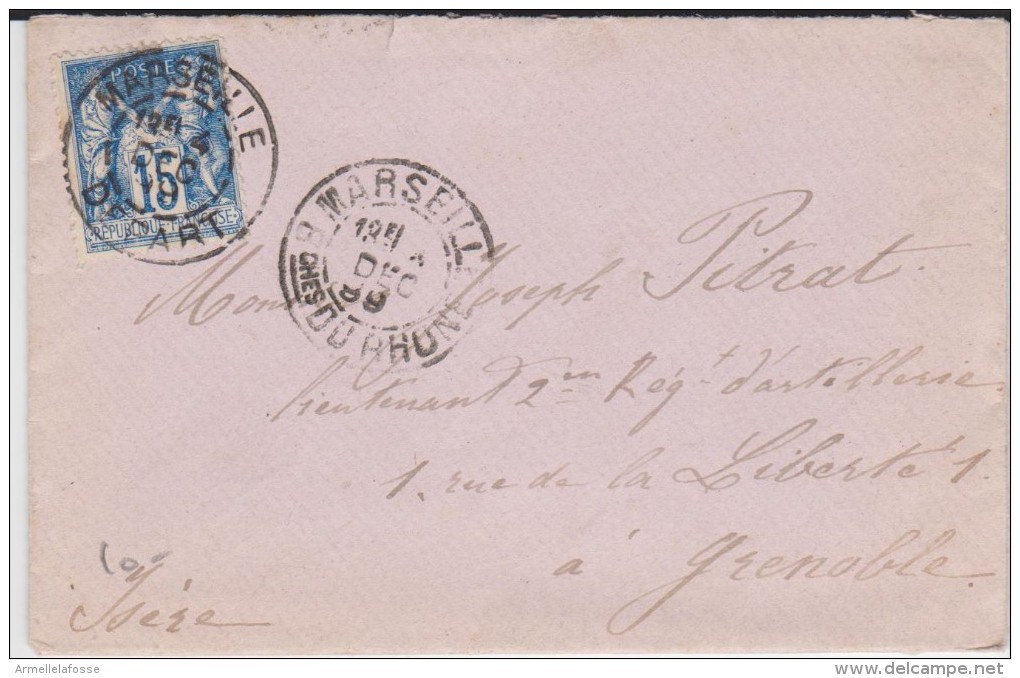 POSTES
15
REPUBLIQUE FRANÇAISE
MARSEILLE
DÉPART
MARSEILLE
DEC
89
BCHES DU RHONE
Joseph Pitrat
lieutenant 2me Régt d'artillerie
1. rue de la Liberté 1.
à Grenoble.
Isère
Armellelafosse
www.delcampe.net